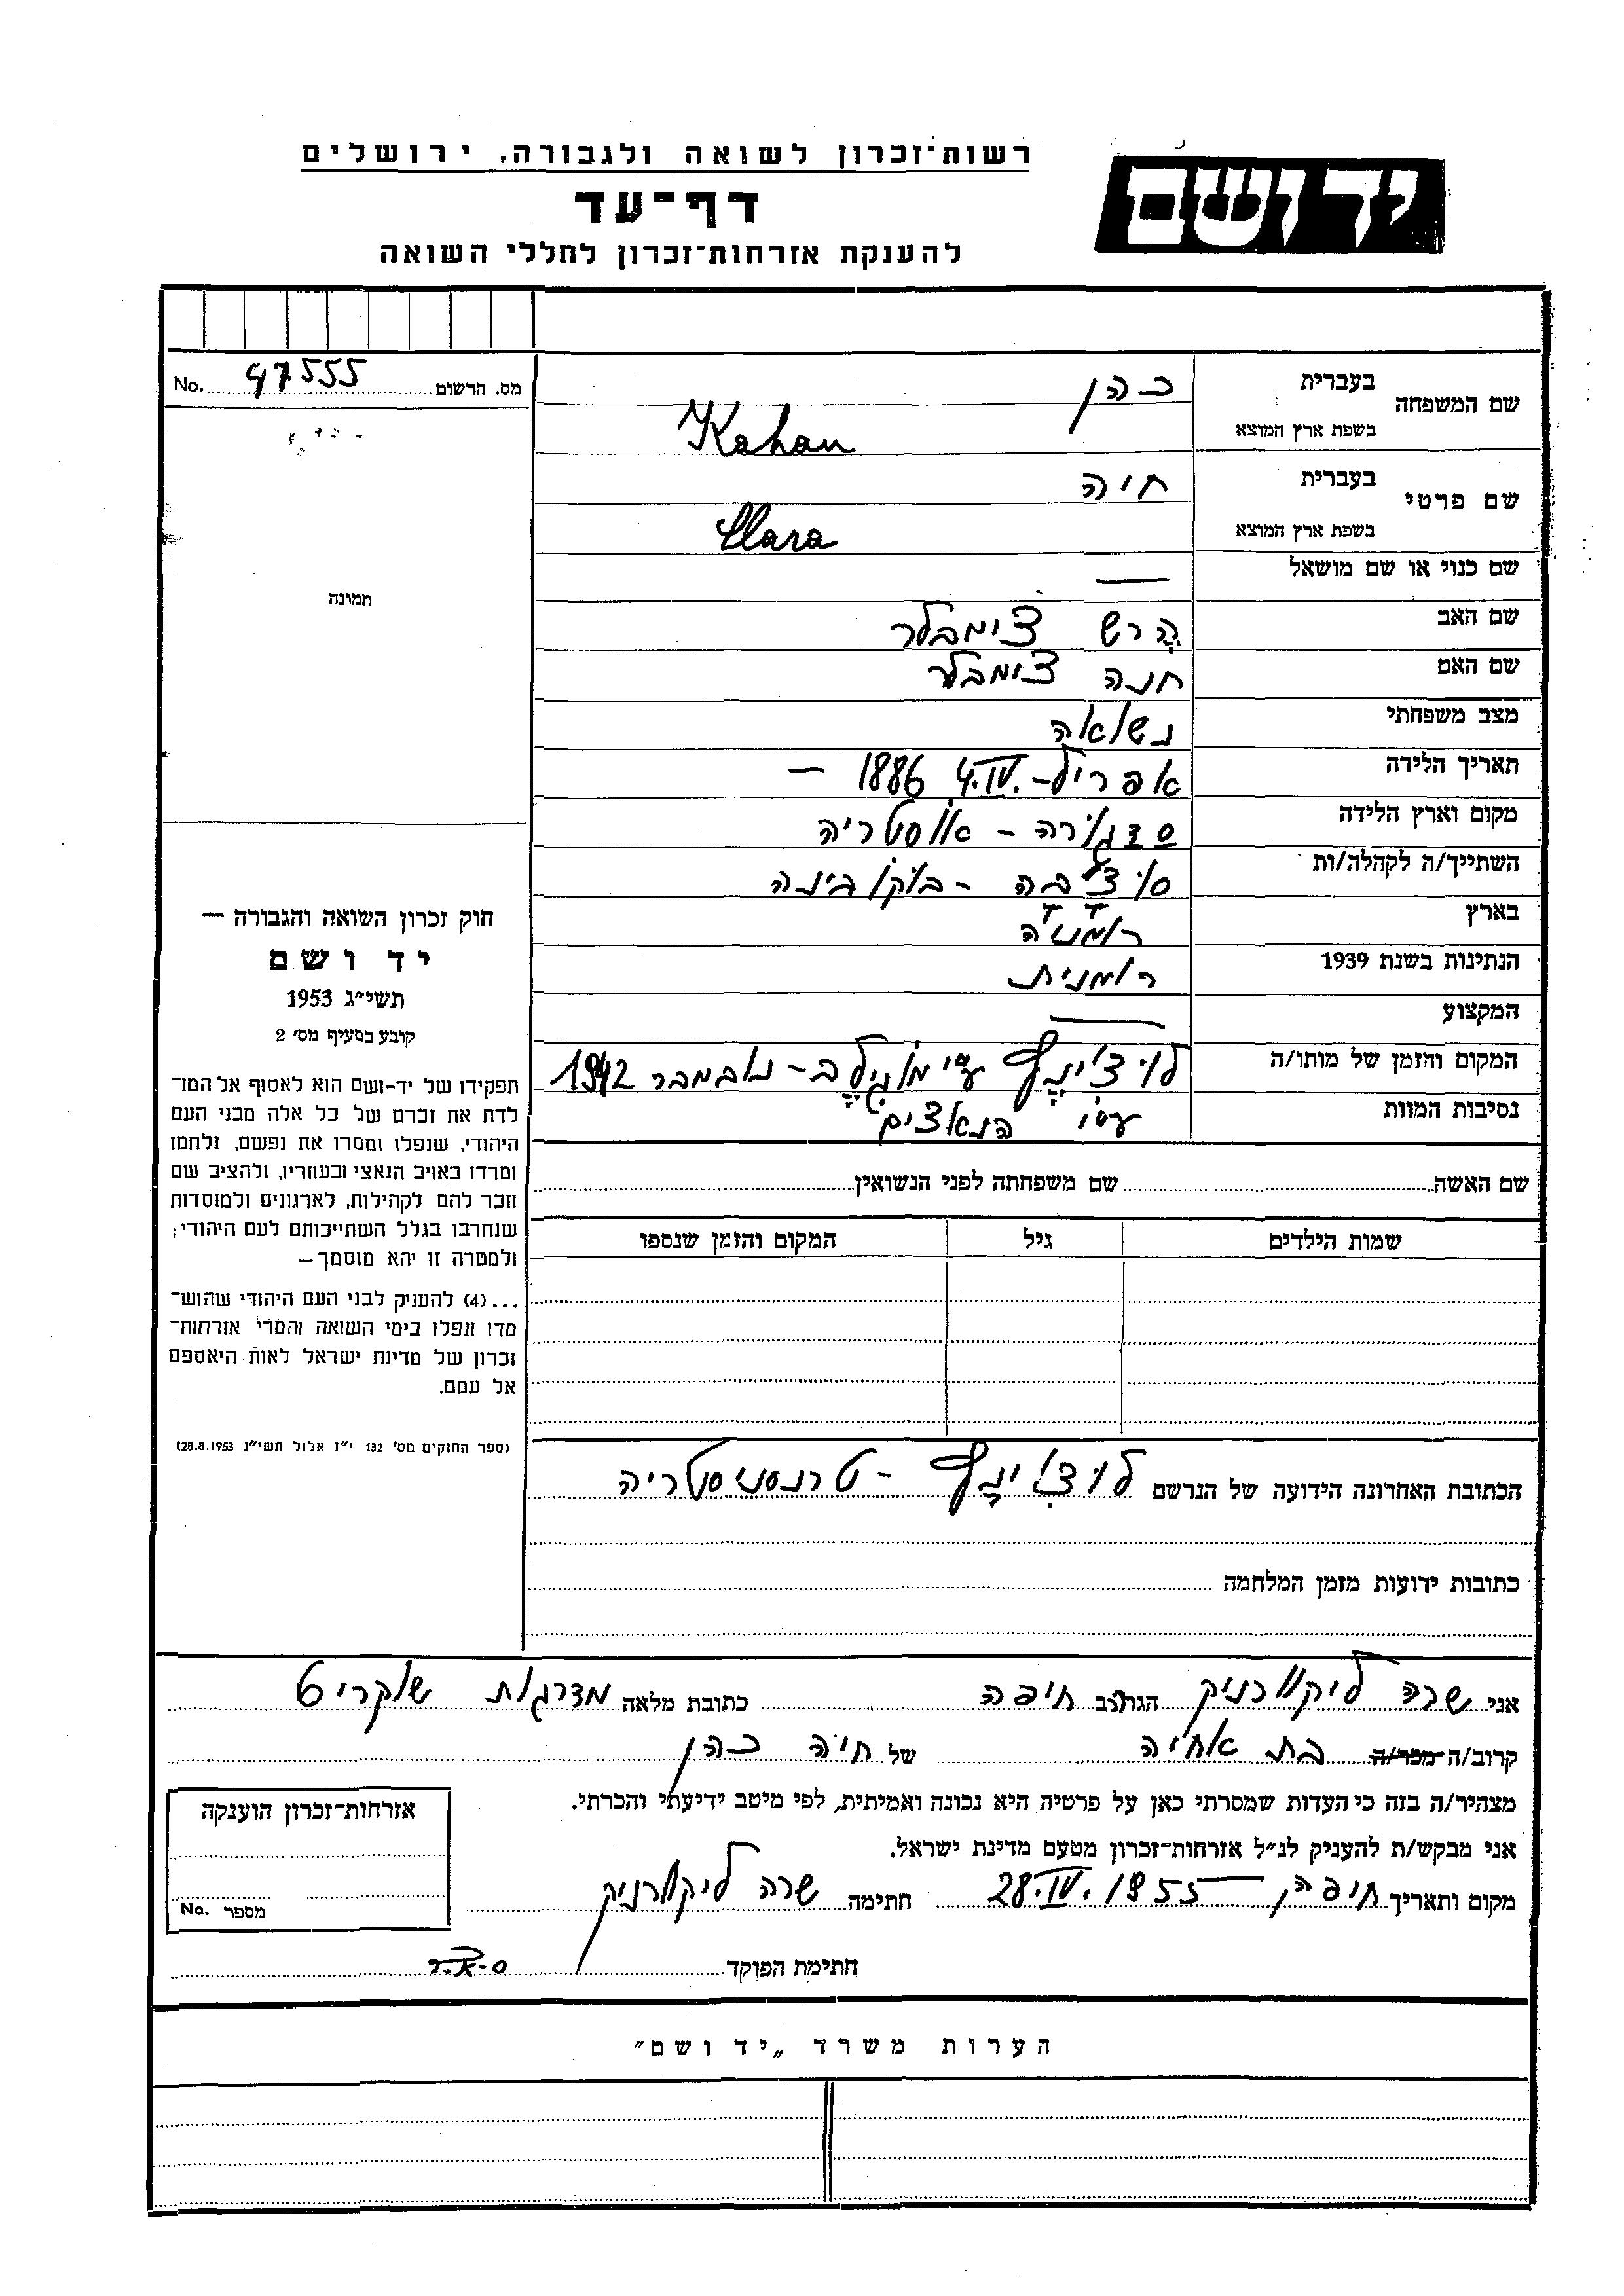 רשות-זכרון לשואה ולגבורה, ירושלים
יד ושם
דף-עד
להענקת אזרחות-זכרון לחללי השואה
מס. הרשום 97555 No.
שם המשפחה בעברית כהן
בשפת ארץ המוצא Kahan
שם פרטי בעברית חיה
בשפת ארץ המוצא Clara
שם כנוי או שם מושאל —
שם האב הרש צימבלר
שם האם חנה צימבלר
מצב משפחתי נשואה
תאריך הלידה אפריל - 4.IV. 1886 —
מקום וארץ הלידה סדגורה - אוסטריה
השתייך/ה לקהלה/ות סוצ'בה - בוקובינה
בארץ רומניה
הנתינות בשנת 1939 רומנית
המקצוע —
המקום והזמן של מותו/ה ע"י מוגילב - נובמבר 1942
נסיבות המוות ע"י הנאצים
שם האשה שם משפחתה לפני הנשואין
שמות הילדים גיל המקום והזמן שנספו
תמונה
חוק זכרון השואה והגבורה —
יד ושם
תשי״ג 1953
קובע בסעיף מס׳ 2
תפקידו של יד-ושם הוא לאסוף אל המו־
לדת את זכרם של כל אלה מבני העם
היהודי, שנפלו ומסרו את נפשם, נלחמו
ומרדו באויב הנאצי ובעוזריו, ולהציב שם
וזכר להם לקהילות, לארגונים ולמוסדות
שנחרבו בגלל השתייכותם לעם היהודי;
ולמטרה זו יהא מוסמך—
...(4) להעניק לבני העם היהודי שהוש־
מדו ונפלו בימי השואה והמרי אזרחות־
זכרון של מדינת ישראל לאות היאספם
אל עמם.
(ספר החוקים מס׳ 132 י״ז אלול תשי״ג 28.8.1953)
הכתובת האחרונה הידועה של הנרשם - טרנסניסטריה
כתובות ידועות מזמן המלחמה
אני שרה ליקוורניק הגר/ב חיפה כתובת מלאה מדרגות שוקריט
קרוב/ה מכר/ה בת אחיה של חיה כהן
מצהיר/ה בזה כי העדות שמסרתי כאן על פרטיה היא נכונה ואמיתית, לפי מיטב ידיעתי והכרתי.
אני מבקש/ת להעניק לנ״ל אזרחות-זכרון מטעם מדינת ישראל.
מקום ותאריך חיפה, 28.IV.1955 חתימה שרה ליקוורניק
חתימת הפוקד
אזרחות-זכרון הוענקה
מספר No.
הערות משרד „יד ושם״